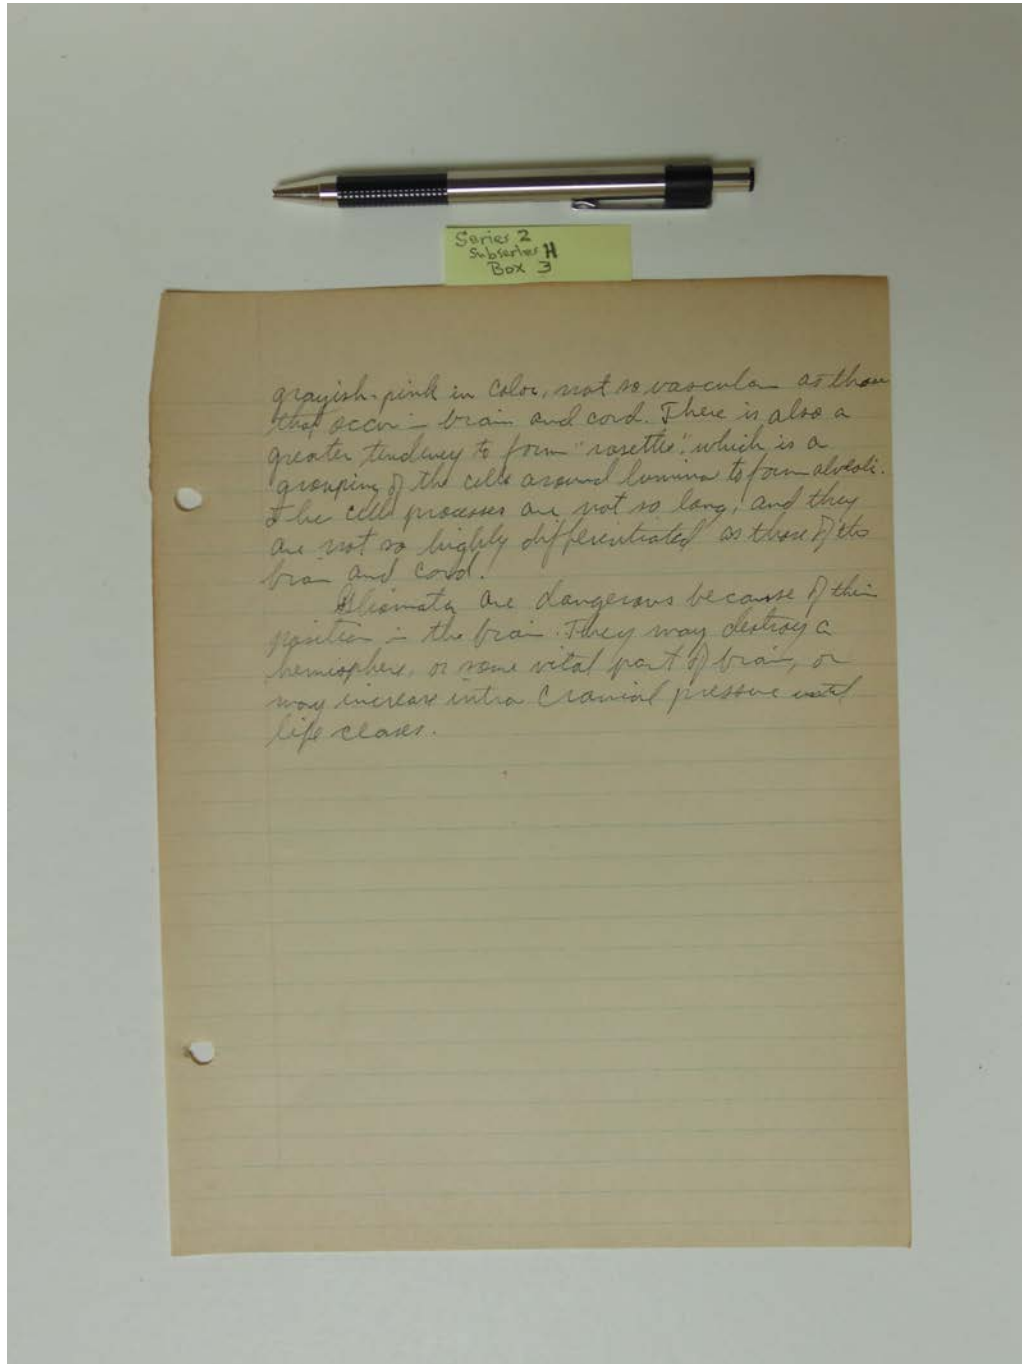 Series 2
Subseries H
Box 3
grayish-pink in color, not so vascular as those
that occur in brain and cord. There is also a
greater tendency to form "rosettes", which is a
grouping of the cells around lumina to form alveoli.
The cell processes are not so long, and they
are not so highly differentiated as those of the
brain and cord.
Gliomata are dangerous because of their
position in the brain. They may destroy a
hemisphere, or some vital part of brain, or
may increase intra cranial pressure until
life closes.